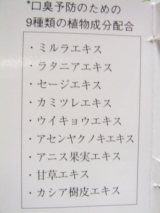 *口臭予防のための
9種類の植物成分配合
・ミルラエキス
・ラタニアエキス
・セージエキス
・カミツレエキス
・ウイキョウエキス
・アセンヤクノキエキス
・アニス果実エキス
・甘草エキス
・カシア樹皮エキス